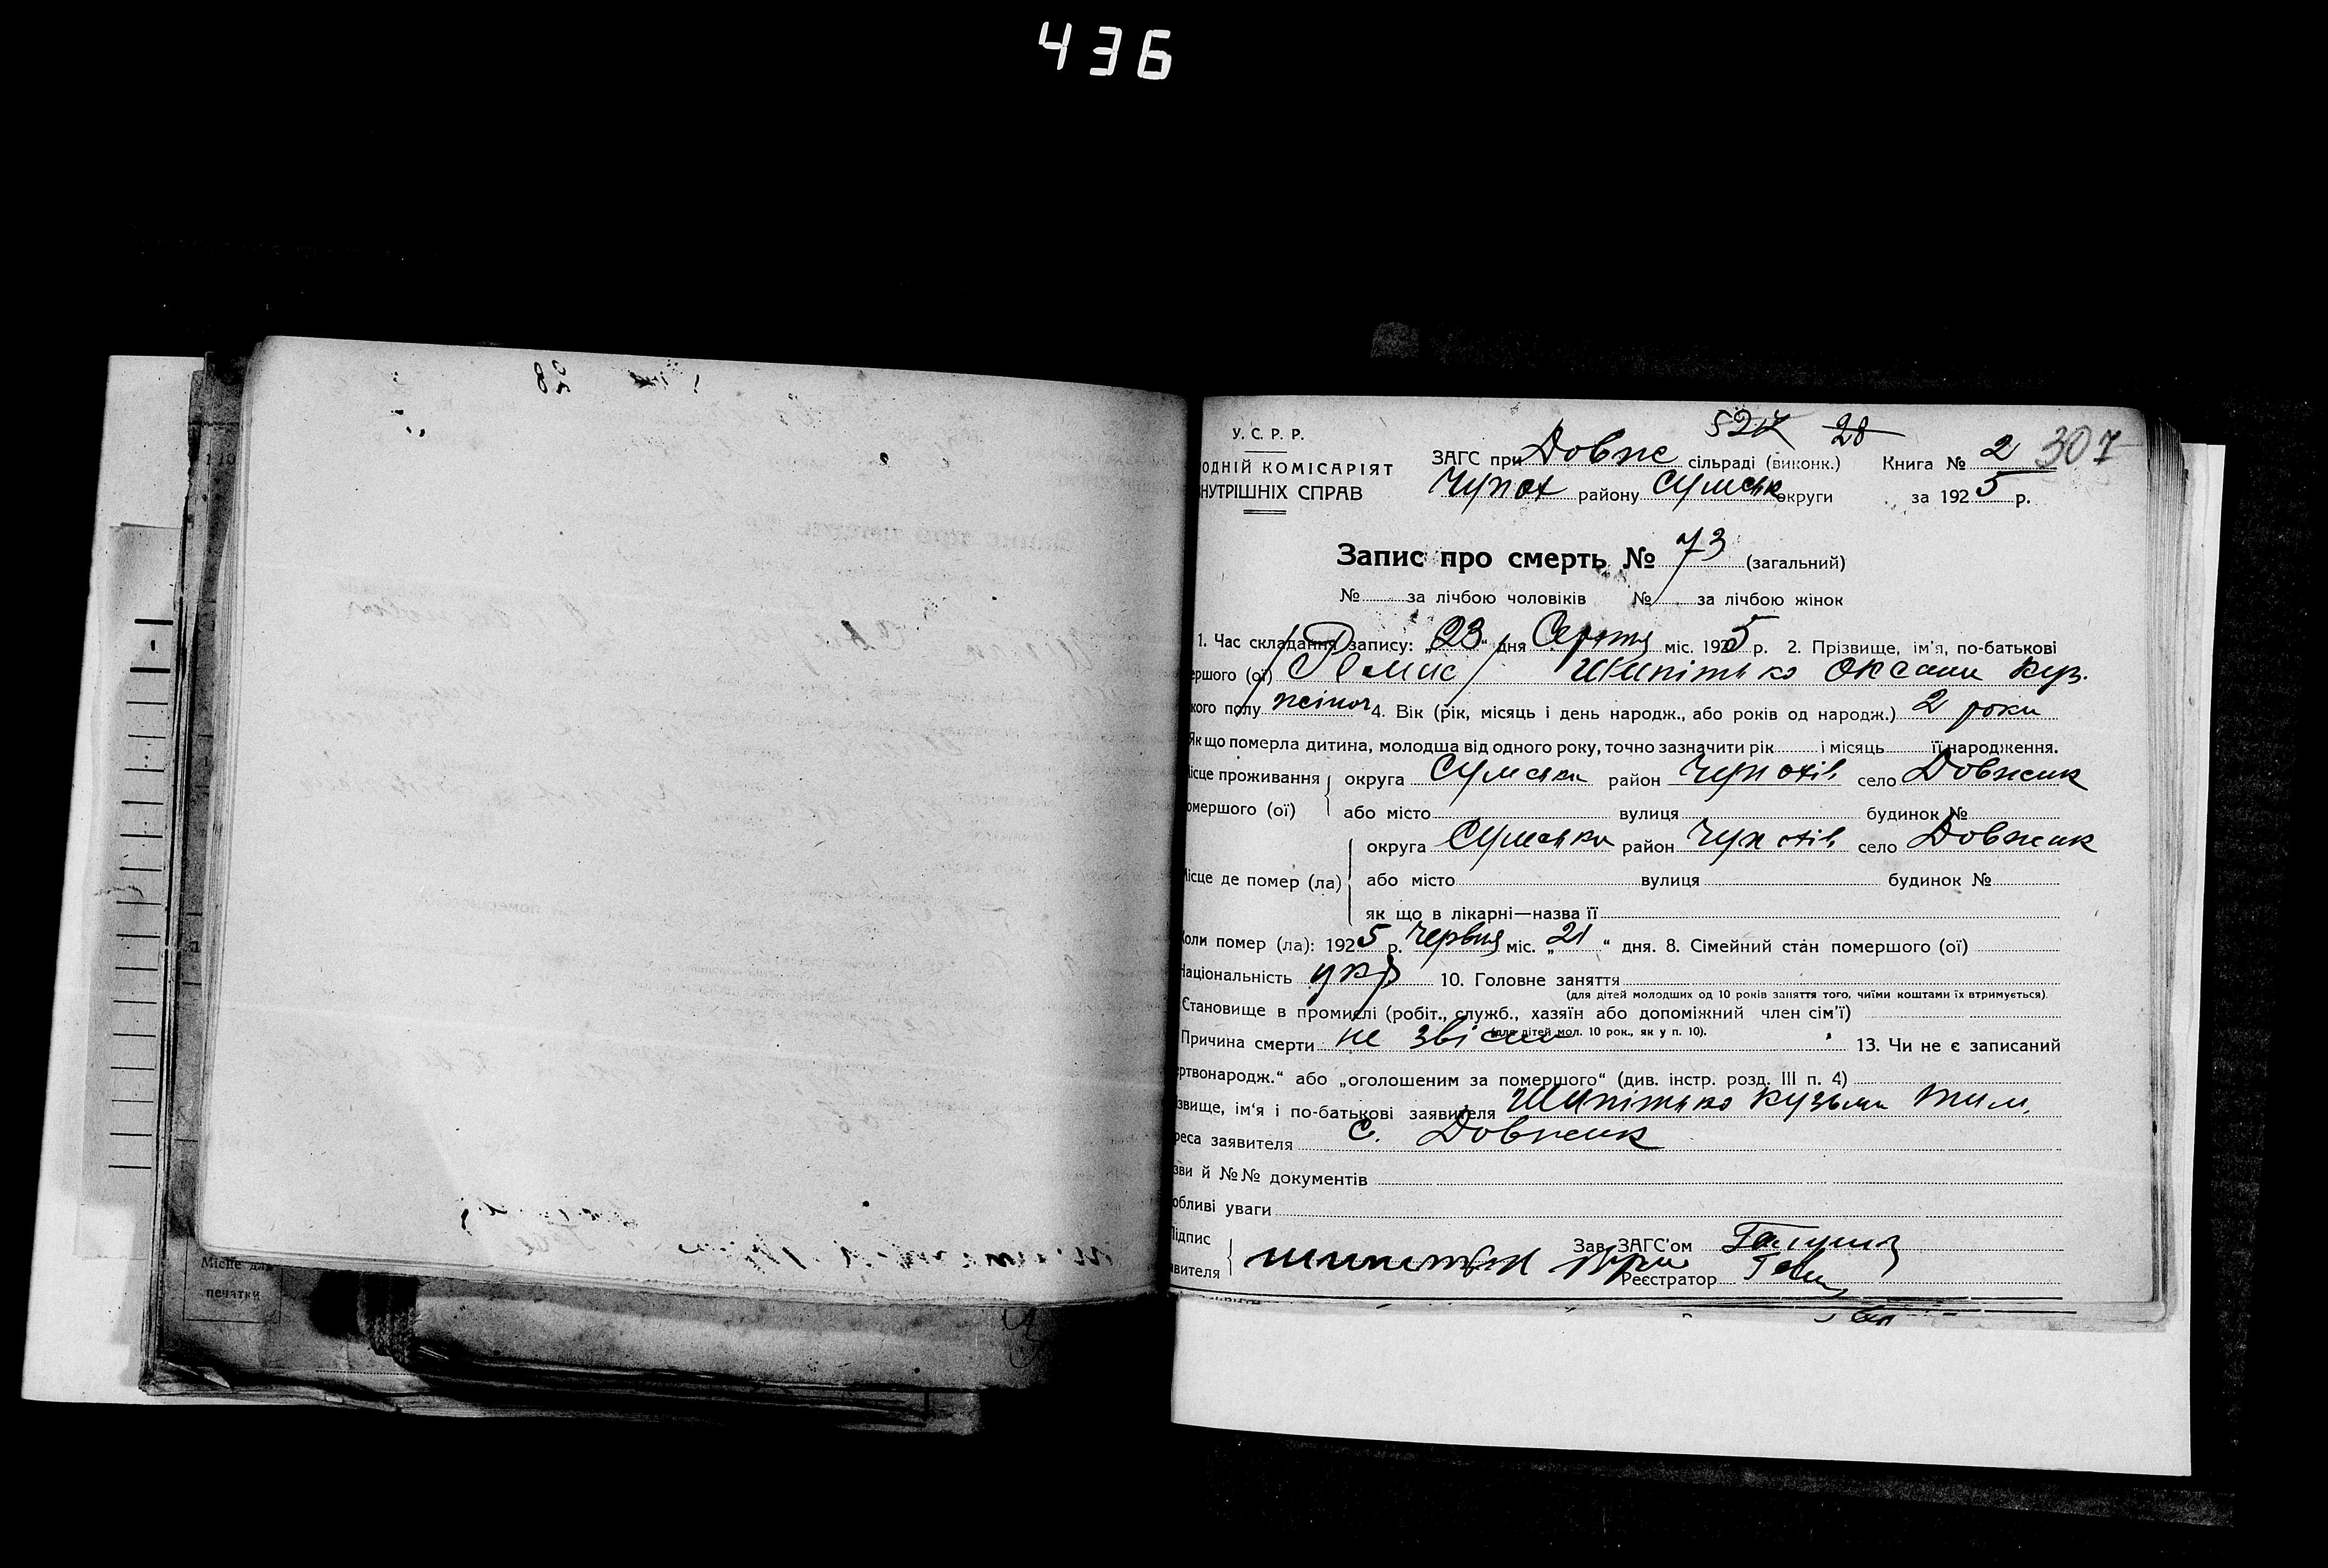 436
У. С. Р. Р.
ОДНІЙ КОМІСАРІЯТ
НУТРІШНІХ СПРАВ
527 28
ЗАГС при Довже сільраді (виконк.) Книга № 2 307
Чупах району Сумськ округи за 1925 р.
Запис про смерть № 73 (загальний)
№ за лічбою чоловіків № за лічбою жінок
1. Час складання запису: „23“ дня Серпня міс. 1925 р. 2. Прізвище, ім'я, по-батькові
ершого (ої) Шипітько Оксана Куз.
кого полу жіноч 4. Вік (рік, місяць і день народж., або років од народж.) 2 роки
Як що померла дитина, молодша від одного року, точно зазначити рік і місяць її народження.
ісце проживання округа Сумська район Чупахів село Довжик
омершого (ої) або місто вулиця будинок №
округа Сумська район Чупахів село Довжик
ісце де помер (ла) або місто вулиця будинок №
як що в лікарні—назва її
Коли помер (ла): 1925 р. Червня міс. „21“ дня. 8. Сімейний стан помершого (ої)
Національність укр 10. Головне заняття
(для дітей молодших од 10 років заняття того, чиїми коштами їх втримується)
Становище в промислі (робіт., служб., хазяїн або допоміжний член сім'ї)
(для дітей мол. 10 рок., як у п. 10).
Причина смерти не звісна 13. Чи не є записаний
ертвонародж.“ або „оголошеним за помершого“ (див. інстр. розд. III п. 4)
звище, ім'я і по-батькові заявителя Шипітько Кузьма Тим.
реса заявителя С. Довжик
зви й №№ документів
обливі уваги
Підпис Зав. ЗАГС'ом
явителя Реєстратор
Місце для
печатки